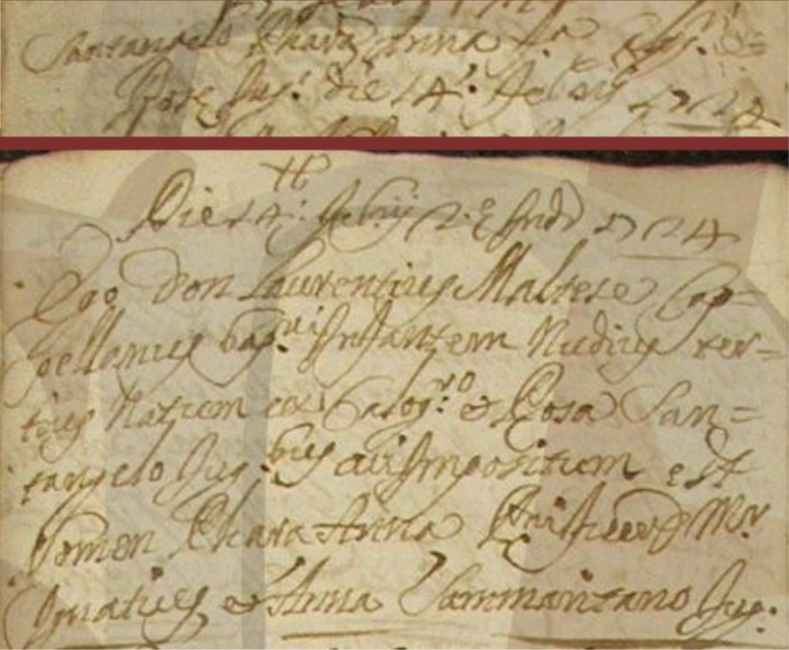 Santangelo Chara Anna
Rosa Jug: die 14: 1724
Die 14: 2.e Ind. 1724
Ego Don Laurentius Maltese Cap=
pellanus bap.vi Infantem Nudius ter=
tius Natum ex Calog.ro et Rosa San=
tangelo Jug.bus cui Impositum est
Nomen Chara Anna fuer. Mr.
Ignatius et Anna Sammanzano Jug.